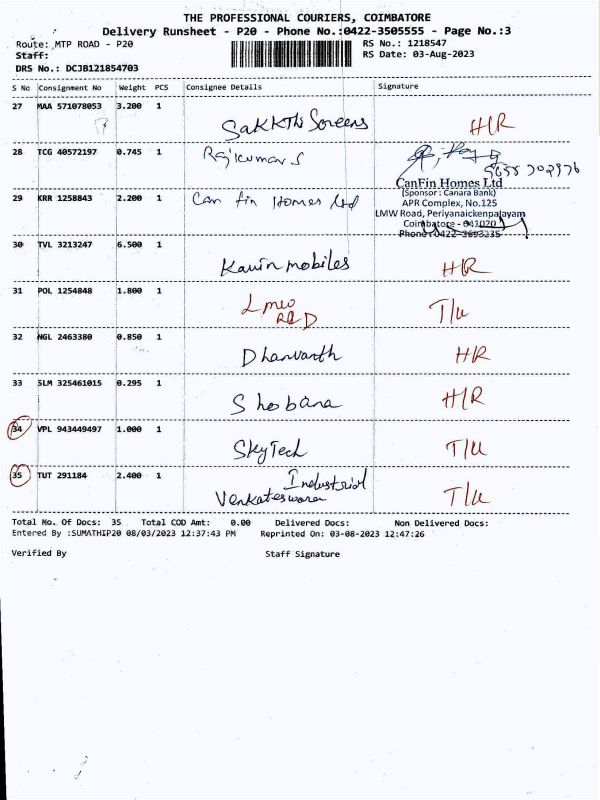 THE PROFESSIONAL COURIERS, COIMBATORE
Delivery Runsheet - P20 - Phone No.:0422-3505555 - Page No.:3
Route: MTP ROAD - P20 RS No.: 1218547
Staff: RS Date: 03-Aug-2023
DRS No.: DCJB121854703
S No Consignment No Weight PCS Consignee Details Signature
27 MAA 571078053 3.200 1 Sakkthi Screens H/R
28 TCG 40572197 0.745 1 Rajkumar S
29 KRR 1258843 2.200 1 Can fin Homes Ltd
CanFin Homes Ltd
(Sponsor : Canara Bank)
APR Complex, No.125
LMW Road, Periyanaickenpalayam
Coimbatore - 641020
Phone : 0422-2693235
30 TVL 3213247 6.500 1 Kavin mobiles H/R
31 POL 1254848 1.800 1 Lmw R&D T/U
32 NGL 2463380 0.850 1 Dhanvanth H/R
33 SLM 325461015 0.295 1 Shobana H/R
34 VPL 943449497 1.000 1 SkyTech T/U
35 TUT 291184 2.400 1 Venkateswara Industrial T/U
Total No. Of Docs: 35 Total COD Amt: 0.00 Delivered Docs: Non Delivered Docs:
Entered By :SUMATHIP20 08/03/2023 12:37:43 PM Reprinted On: 03-08-2023 12:47:26
Verified By Staff Signature